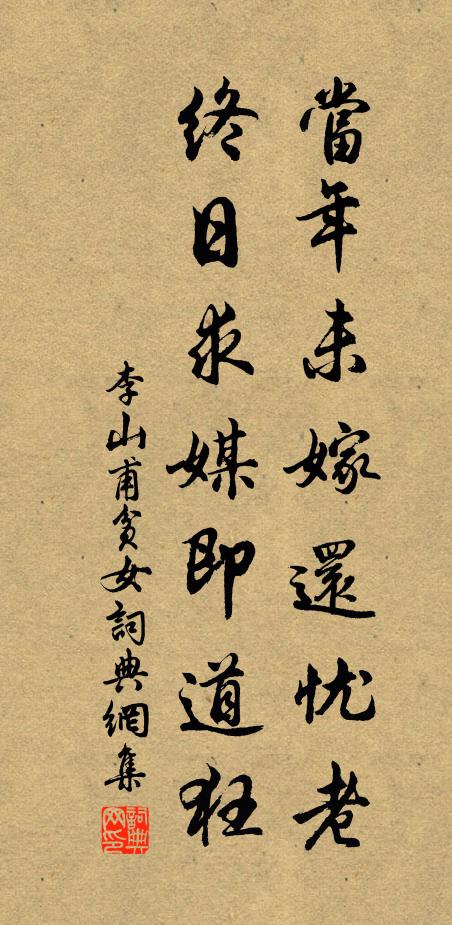 當年未嫁還忧老
終日求媒即道狂
李山甫貧女詞典網集
詞典網印